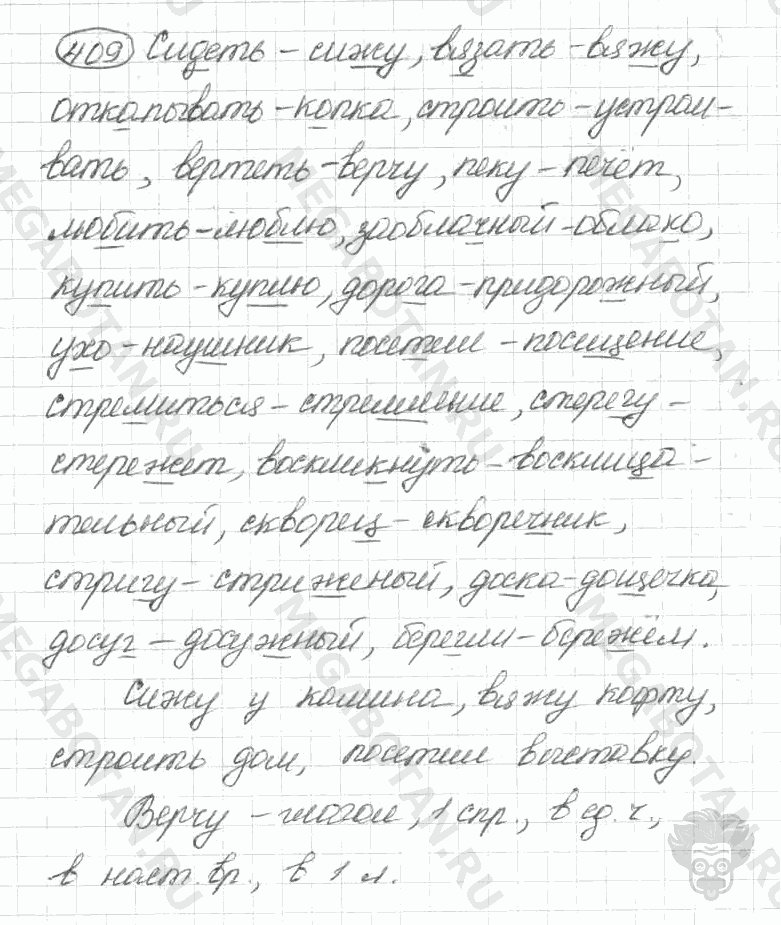 409 Сидеть – сижу, вязать – вяжу,
откапывать – копка, строить – устраи-
вать, вертеть – верчу, пеку – печёт,
любить – люблю, заоблачный – облако,
купить – куплю, дорога – придорожный,
ухо – наушник, посетил – посещение,
стремиться – стремление, стерегу –
стережет, воскликнуть – восклица-
тельный, скворец – скворечник,
стригу – стриженый, доска – дощечка,
досуг – досужный, берегли – бережём.
Сижу у камина, вяжу кофту,
строить дом, посетил выставку.
Верчу – глагол, 1 спр., в ед. ч.,
в наст. вр., в 1 л.
MEGABOTAN.RU
MEGABOTAN.RU
MEGABOTAN.RU
MEGABOTAN.RU
MEGABOTAN.RU
MEGABOTAN.RU